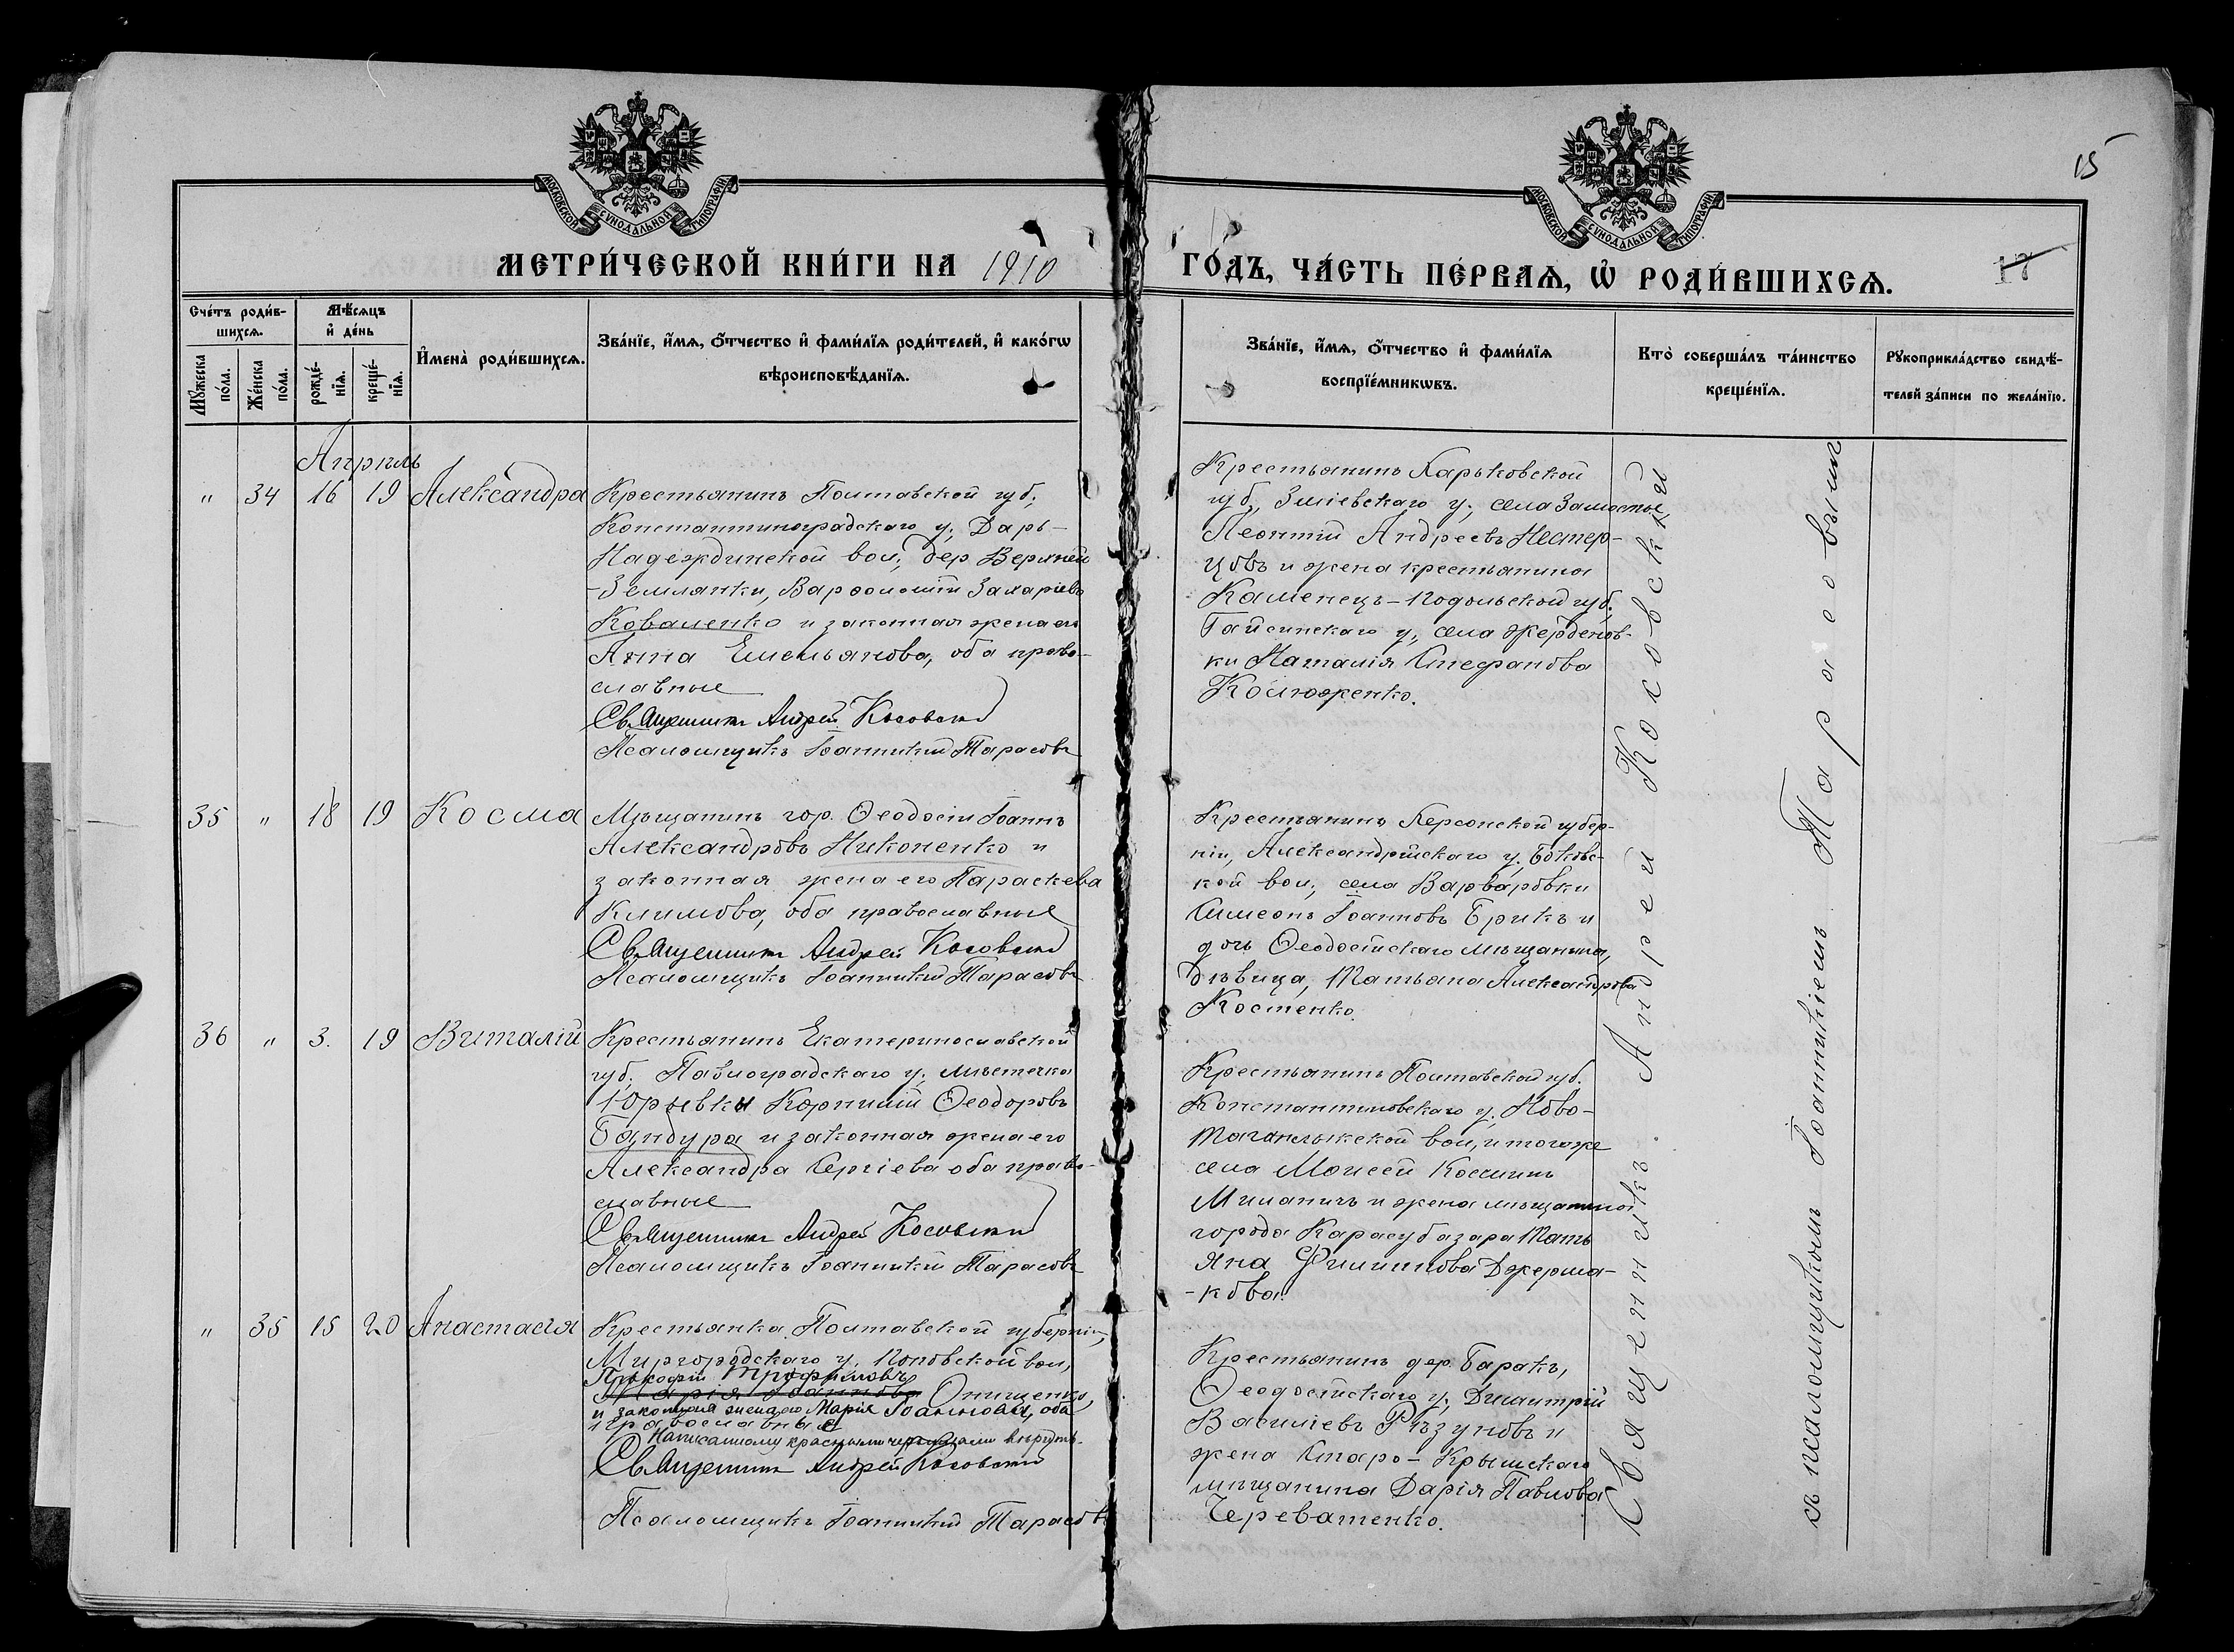 15
МОСКОВСКОЙ СѴНОДАЛЬНОЙ ТИПОГРАФІИ
МОСКОВСКОЙ СѴНОДАЛЬНОЙ ТИПОГРАФІИ
МЕТРИ́ЧЕСКОЙ КНИ́ГИ НА 1910
ГО́ДЪ, ЧА́СТЬ ПЕ́РВАѦ, Ѡ҆ РОДИ́ВШИХСѦ.
Сче́тъ роди́в-
шихсѧ.
Мꙋ́жеска по́ла.
Же́нска по́ла.
Мѣ́сѧцъ
и҆ де́нь
рожде́-
нїѧ.
креще́-
нїѧ.
И҆мена̀ роди́вшихсѧ.
Зва́нїе, и҆́мѧ, ѻ҆́тчество и҆ фами́лїѧ роди́телей, и҆ како́гѡ
вѣроисповѣ́данїѧ.
Зва́нїе, и҆́мѧ, ѻ҆́тчество и҆ фами́лїѧ
воспрїе́мникѡвъ.
Кто̀ соверша́лъ та́инство
креще́нїѧ.
Рꙋкоприкла́дство свидѣ́-
телей за́писи по жела́нїю.
Апрѣль
" 34 16 19 Александра
Крестьянинъ Полтавской губ.,
Константиноградскаго у., Дарь-
Надеждинской вол., дер Верхней
-Землянки, Варѳоломій Захаріевъ
Коваленко и законная жена его
Анна Емельянова, оба право-
славные
Священникъ Андрей Косовскій
Псаломщикъ Іоанникій Тарасовъ
Крестьянинъ Харьковской
губ., Зміевскаго у., села Замостье,
Леонтій Андреевъ Нестер-
цовъ и жена крестьянина
Каменецъ-Подольской губ.
Гайсинскаго у., села Жерденов-
ки Наталія Стефанова
Колюженко.
35 " 18 19 Косма
Мѣщанинъ гор. Ѳеодосіи Іоаннъ
Александровъ Никоненко и
законная жена его Параскева
Климова, оба православные
Священникъ Андрей Косовскій
Псаломщикъ Іоанникій Тарасовъ
Крестьянинъ Херсонской губер-
ніи, Александрійскаго у. Боковс-
кой вол., села Варваровки
Симеонъ Іоанновъ Брикъ и
дочь Ѳеодосійскаго мѣщанина,
дѣвица, Татьяна Александрова
Костенко.
36 " 3. 19 Виталій
Крестьянинъ Екатеринославской
губ. Павлоградскаго у. мѣстечка
Юрьевки Корнилій Ѳеодоровъ
Бандура и законная жена его
Александра Сергіева оба право-
славные
Священникъ Андрей Косовскій
Псаломщикъ Іоанникій Тарасовъ
Крестьянинъ Полтавской губ.
Константиновскаго у. Ново-
вол., и тогоже
села Моисей Косминъ
Миланичъ и жена мѣщанина
города Карасубазара Тать
яна Филиппова Джерма-
-кова.
" 35 15 20 Анастасія
Крестьянка Полтавской губерніи,
Миргородскаго у. Поповской вол,
Прокофій Трофимовъ
Марія Іоаннова Онищенко,
и законная жена его Марія Іоаннова, оба
православные
Написанному красными чернилами вѣрить.
Священникъ Андрей Косовскій
Псаломщикъ Іоанникій Тарасовъ
Крестьянинъ дер. Баракъ,
Ѳеодосійскаго у., Димитрій
Василіевъ Рѣзуновъ и
жена Старо-Крымскаго
мѣщанина Дарія Павлова
Череватенко.
Священникъ Андрей Косовскій
съ псаломщикомъ Іоанникіемъ Тарасовымъ